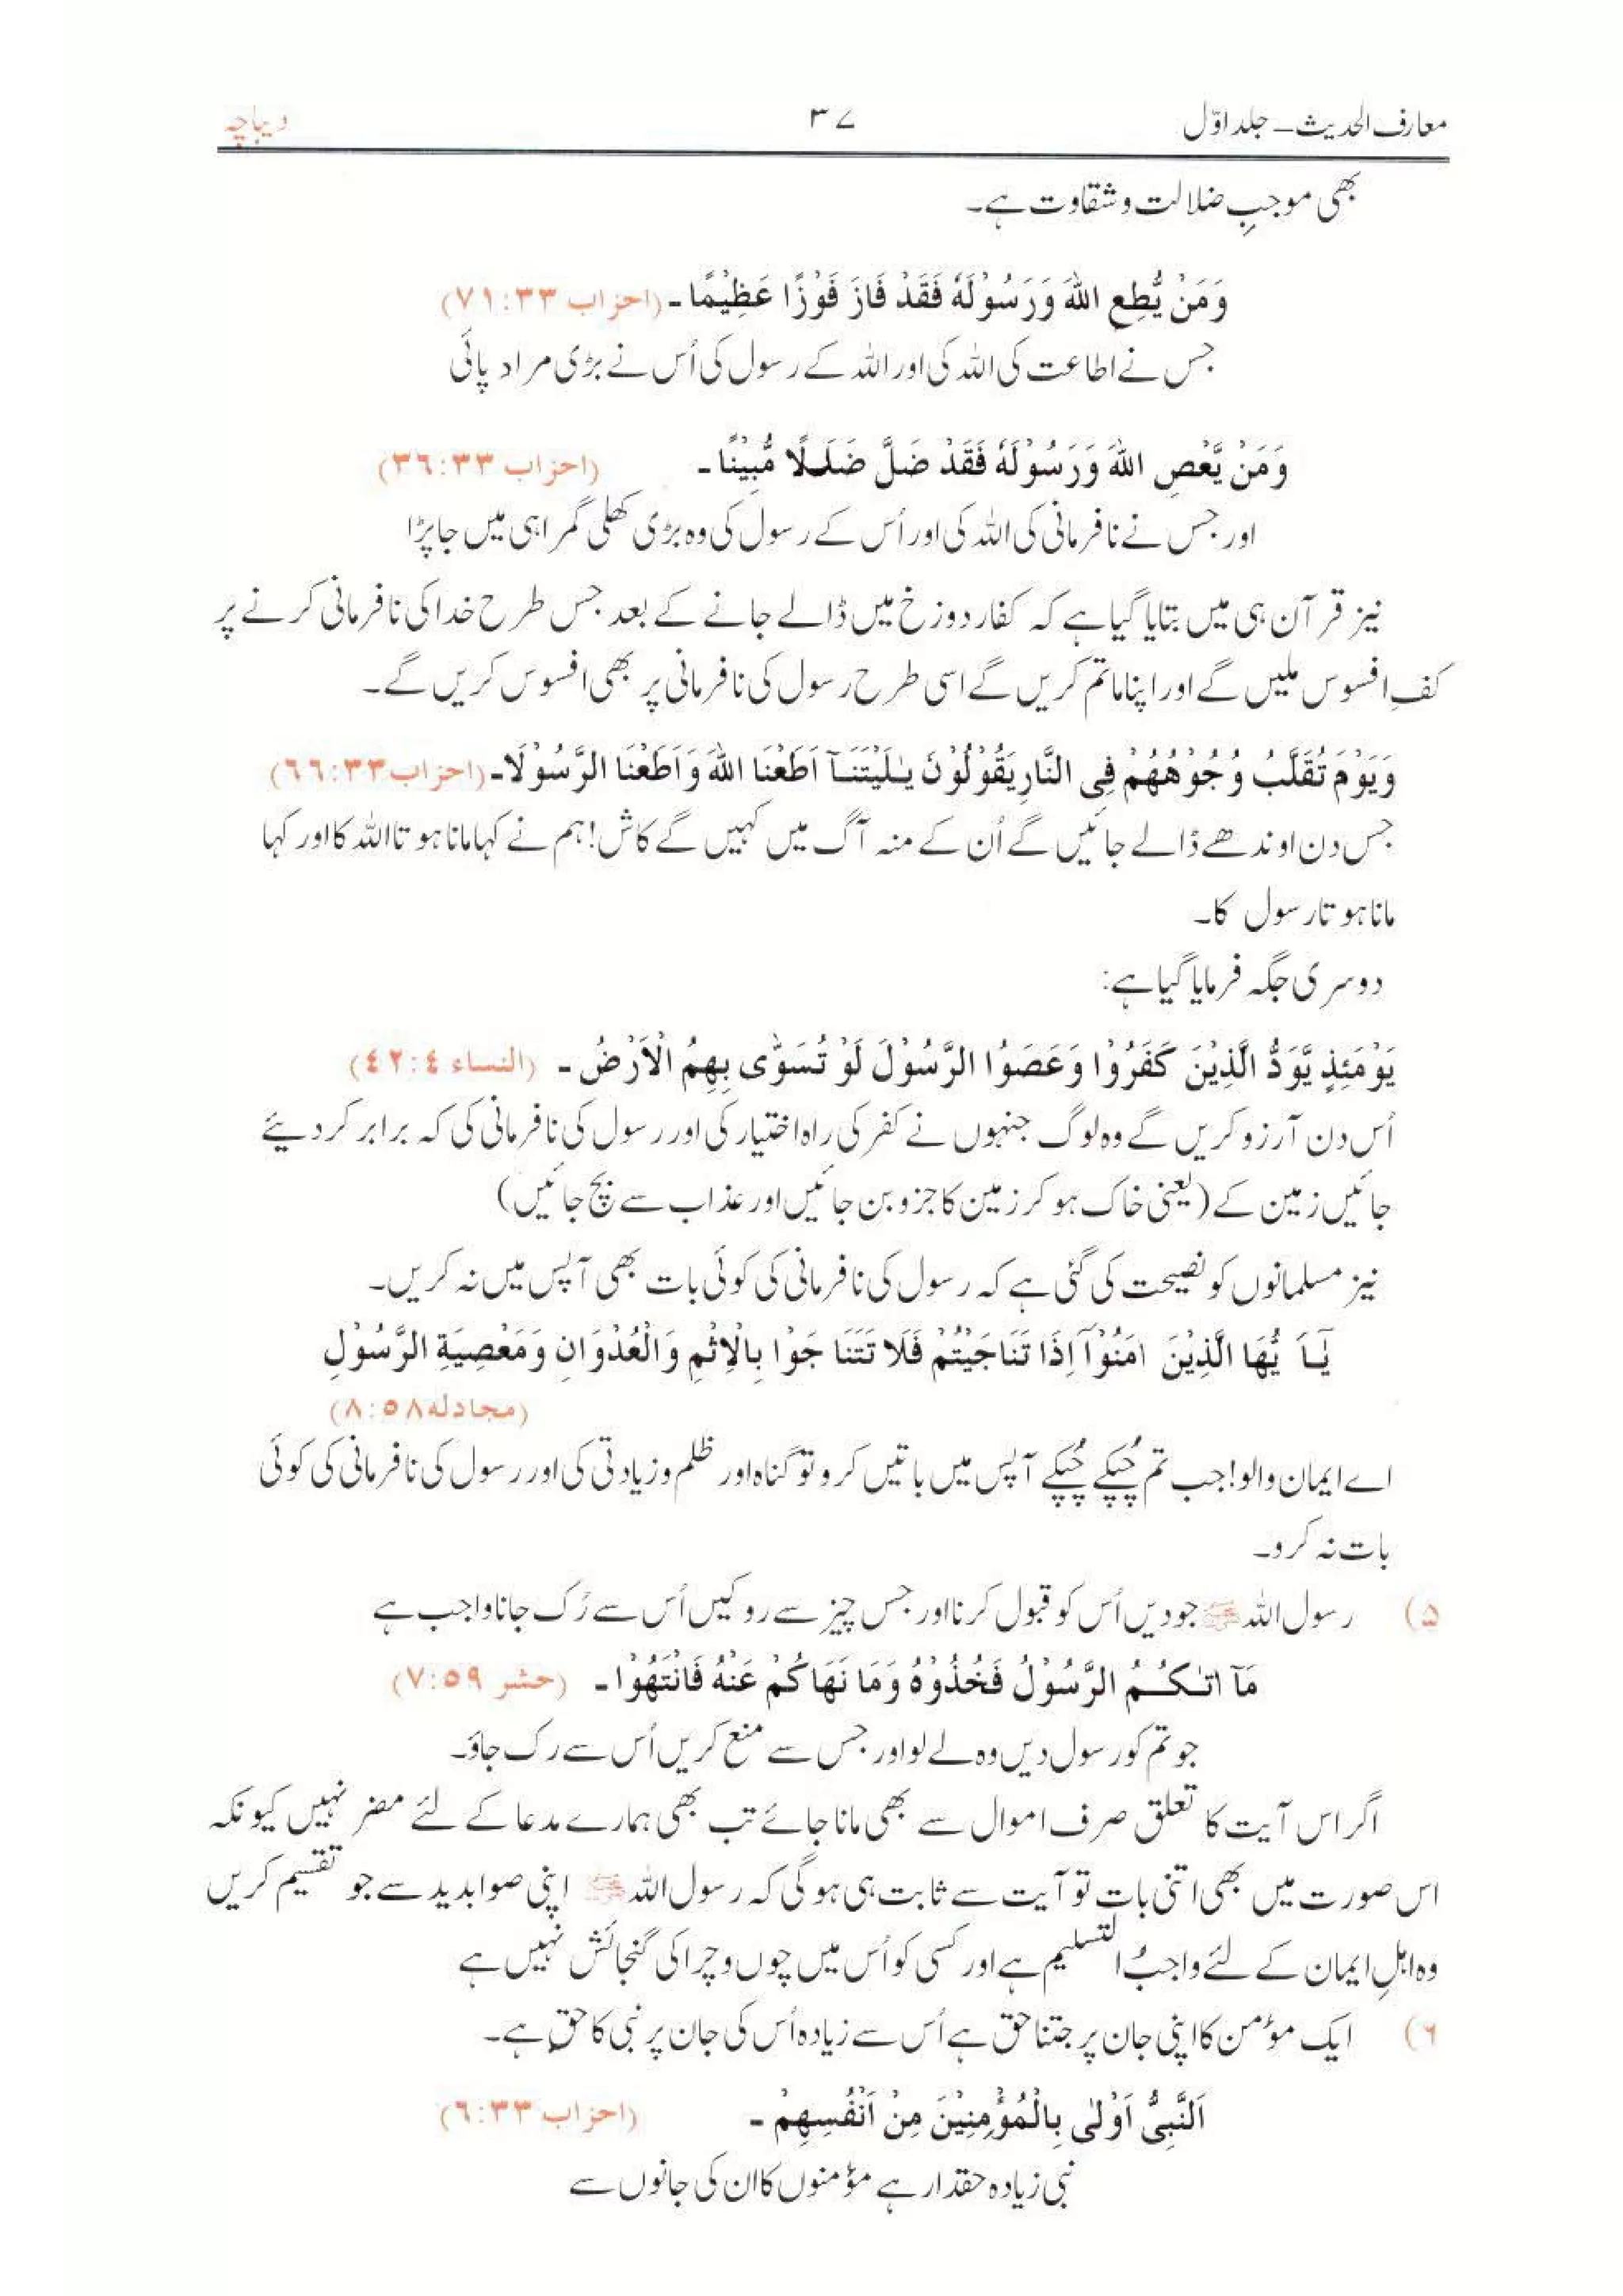 معارف الحدیث – جلد اوّل ۳۷ دیباچہ
بھی موجبِ ضلالت و شقاوت ہے۔
وَمَنْ يُّطِعِ اللهَ وَرَسُوْلَهٗ فَقَدْ فَازَ فَوْزًا عَظِيْمًا۔ (احزاب ٣٣:٧١)
جس نے اطاعت کی اللہ کی اور اللہ کے رسول کی اُس نے بڑی مراد پائی
وَمَنْ يَّعْصِ اللهَ وَرَسُوْلَهٗ فَقَدْ ضَلَّ ضَلَـلًا مُّبِيْنًا۔ (احزاب ٣٣:٣٦)
اور جس نے نافرمانی کی اللہ کی اور اُس کے رسول کی وہ بڑی کھلی گمراہی میں جا پڑا
نیز قرآن ہی میں بتایا گیا ہے کہ کفار دوزخ میں ڈالے جانے کے بعد جس طرح خدا کی نافرمانی کرنے پر
کفِ افسوس ملیں گے اور اپنا ماتم کریں گے اسی طرح رسول کی نافرمانی پر بھی افسوس کریں گے۔
وَيَوْمَ تُقَلَّبُ وُجُوْهُهُمْ فِى النَّارِ يَقُوْلُوْنَ يـٰلَيْتَنَـآ اَطَعْنَا اللهَ وَاَطَعْنَا الرَّسُوْلَا۔ (احزاب ٣٣:٦٦)
جس دن اوندھے ڈالے جائیں گے اُن کے منہ آگ میں کہیں گے کاش! ہم نے کہا مانا ہوتا اللہ کا اور کہا
مانا ہوتا رسول کا۔
دوسری جگہ فرمایا گیا ہے:
يَوْمَئِذٍ يَّوَدُّ الَّذِيْنَ كَفَرُوْا وَعَصَوُا الرَّسُوْلَ لَوْ تُسَوّٰى بِهِمُ الْاَرْضُ۔ (النساء ٤:٤٢)
اُس دن آرزو کریں گے وہ لوگ جنہوں نے کفر کی راہ اختیار کی اور رسول کی نافرمانی کی کہ برابر کر دیئے
جائیں زمین کے (یعنی خاک ہو کر زمین کا جزو بن جائیں اور عذاب سے بچ جائیں)
نیز مسلمانوں کو نصیحت کی گئی ہے کہ رسول کی نافرمانی کی کوئی بات بھی آپس میں نہ کریں۔
يٰٓـاَ يُّهَا الَّذِيْنَ اٰمَنُوْٓا اِذَا تَنَاجَيْتُمْ فَلَا تَتَنَا جَوْا بِالْاِثْمِ وَالْعُدْوَانِ وَمَعْصِيَةِ الرَّسُوْلِ
(مجادله ٥٨:٨)
اے ایمان والو! جب تم چُپکے چُپکے آپس میں باتیں کرو تو گناہ اور ظلم و زیادتی کی اور رسول کی نافرمانی کی کوئی
بات نہ کرو۔
۵) رسول اللہ ﷺ جو دیں اُس کو قبول کرنا اور جس چیز سے روکیں اُس سے رُک جانا واجب ہے
مَآ اٰتٰـكُـمُ الرَّسُوْلُ فَخُذُوْهُ وَمَا نَهَاكُمْ عَنْهُ فَانْتَهُوْا۔ (حشر ٥٩:٧)
جو تم کو رسول دیں وہ لے لو اور جس سے منع کریں اُس سے رک جاؤ۔
اگر اس آیت کا تعلق صرف اموال سے بھی مانا جائے تب بھی ہمارے مدعا کے لئے مضر نہیں کیونکہ
اس صورت میں بھی اتنی بات تو آیت سے ثابت ہی ہو گی کہ رسول اللہ ﷺ اپنی صوابدید سے جو تقسیم کریں
وہ اہلِ ایمان کے لئے واجبُ التسلیم ہے اور کسی کو اُس میں چوں و چرا کی گنجائش نہیں ہے
۶) ایک مؤمن کا اپنی جان پر جتنا حق ہے اُس سے زیادہ اُس کی جان پر نبی کا حق ہے۔
اَلنَّبِىُّ اَوْلٰى بِالْمُؤْمِنِيْنَ مِنْ اَنْفُسِهِمْ۔ (احزاب ٣٣:٦)
نبی زیادہ حقدار ہے مؤمنوں کا ان کی جانوں سے